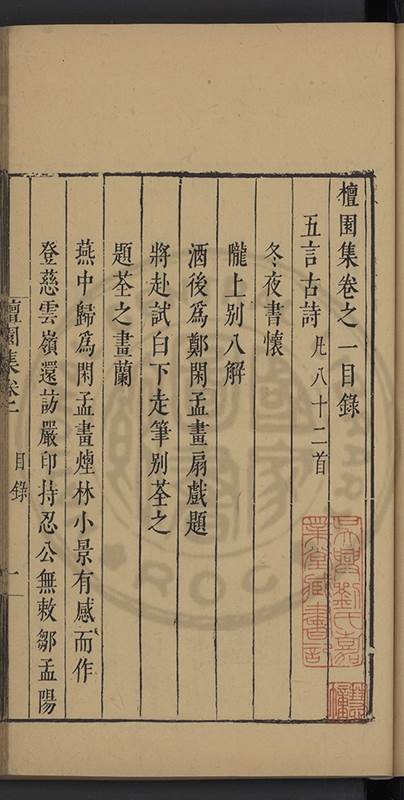 檀園集卷之一目錄
五言古詩 凡八十二首
冬夜書懷
隴上別八解
酒後為鄭閑孟畫扇戲題
將赴試白下走筆別荃之
題荃之畫蘭
燕中歸為閑孟畫煙林小景有感而作
登慈雲嶺還訪嚴印持忍公無敕鄒孟陽
檀園集卷一 目錄 一
吳興劉氏嘉業堂藏書記